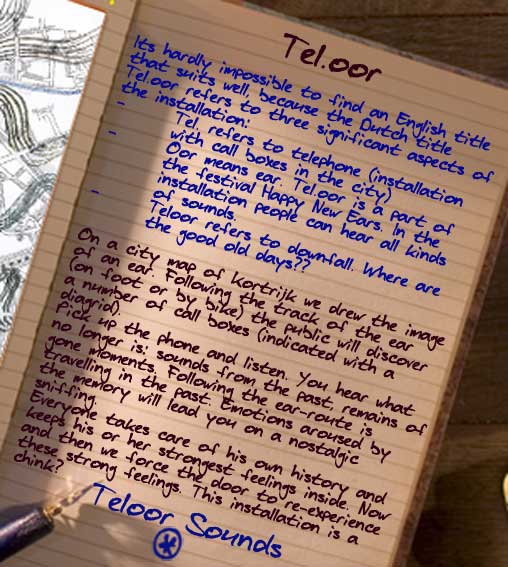 Tel.oor
Its hardly impossible to find an English title
that suits well, because the Dutch title
Tel.oor refers to three significant aspects of
the installation:
- Tel, refers to telephone (installation
with call boxes in the city)
- Oor means ear. Tel.oor is a part of
the festival Happy New Ears. In the
installation people can hear all kinds
of sounds.
- Teloor refers to downfall. Where are
the good old days??
On a city map of Kortrijk we drew the image
of an ear. Following the track of the ear
(on foot or by bike) the public will discover
a number of call boxes (indicated with a
diagrid).
Pick up the phone and listen. You hear what
no longer is: sounds from the past, remains of
gone moments. Following the ear-route is
travelling in the past. Emotions aroused by
the memory will lead you on a nostalgic
sniffing.
Everyone takes care of his own history and
keeps his or her strongest feelings inside. Now
and then we force the door to re-experience
these strong feelings. This installation is a
chink?
Teloor Sounds
*